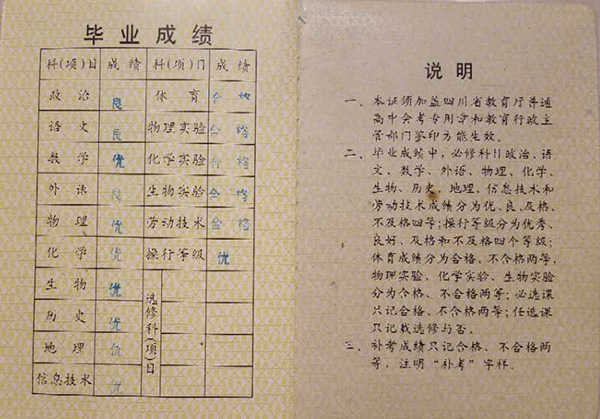 毕业成绩
科(项)目 成绩 科(项)门 成绩
政治 良 体育 合格
语文 良 物理实验 合格
数学 优 化学实验 合格
外语 良 生物实验 合格
物理 优 劳动技术 合格
化学 优 操行等级 优
生物 优 选修科(项)目
历史 优
地理 优
信息技术 优
说明
一、本证须加盖四川省教育厅普通
高中会考专用章和教育行政主
管部门掌印方能生效。
二、毕业成绩中，必修科目政治、语
文、数学、外语、物理、化学、
生物、历史、地理、信息技术和
劳动技术成绩分为优、良、及格、
不及格四等；操行等级分为优秀、
良好、及格和不及格四个等级；
体育成绩分为合格、不合格两等，
物理实验、化学实验、生物实验
分为合格、不合格两等；必选课
只记合格、不合格两等；任选课
只记载选修与否。
三、补考成绩只记合格、不合格两
等，注明“补考”字样。